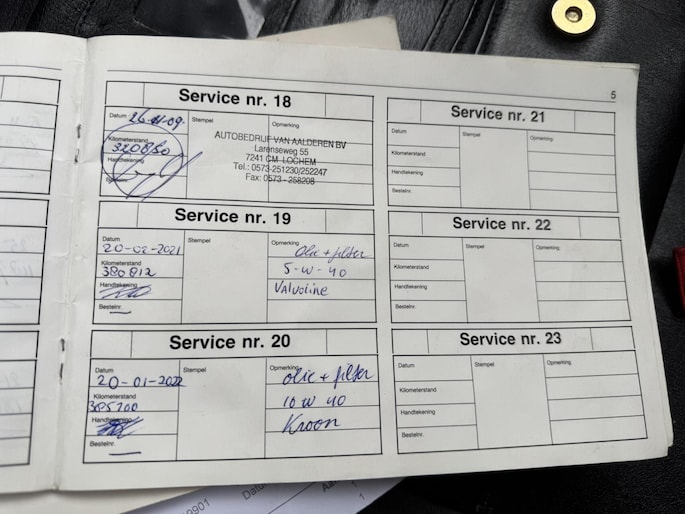 5
Service nr. 18
Datum 26-11-09.
Stempel
Opmerking
Kilometerstand
Handtekening
AUTOBEDRIJF VAN AALDEREN BV
Larenseweg 55
7241 CM LOCHEM
Tel.: 0573-251230/252247
Fax: 0573 - 258208
Service nr. 19
Datum
20-02-2021
Kilometerstand
380812
Handtekening
Bestelnr.
Stempel
Opmerking
Olie + filter
5-W-40
Valvoline
Service nr. 20
Datum
20-01-2022
Kilometerstand
385700
Handtekening
Bestelnr.
Stempel
Opmerking
olie + filter
10 W 40
Kroon
Service nr. 21
Datum
Kilometerstand
Handtekening
Bestelnr.
Stempel
Opmerking
Service nr. 22
Datum
Kilometerstand
Handtekening
Bestelnr.
Stempel
Opmerking
Service nr. 23
Datum
Kilometerstand
Handtekening
Bestelnr.
Stempel
Opmerking